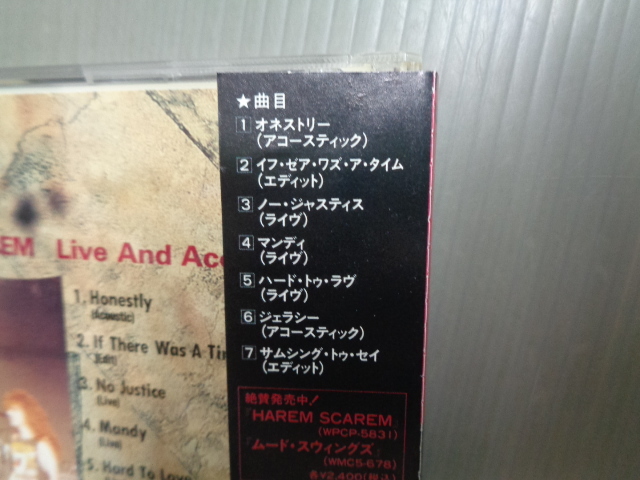 ★曲目
1 オネストリー
(アコースティック)
2 イフ・ゼア・ワズ・ア・タイム
(エディット)
3 ノー・ジャスティス
(ライヴ)
4 マンディ
(ライヴ)
5 ハード・トゥ・ラヴ
(ライヴ)
6 ジェラシー
(アコースティック)
7 サムシング・トゥ・セイ
(エディット)
絶賛発売中!
「HAREM SCAREM」
(WPCP-5831)
「ムード・スウィングズ」
(WMC5-678)
各¥2,400(税込)
EM Live And Aco
1. Honestly
(Acoustic)
2. If There Was A Tim
(Edit)
3. No Justice
(Live)
4. Mandy
(Live)
5. Hard To Love